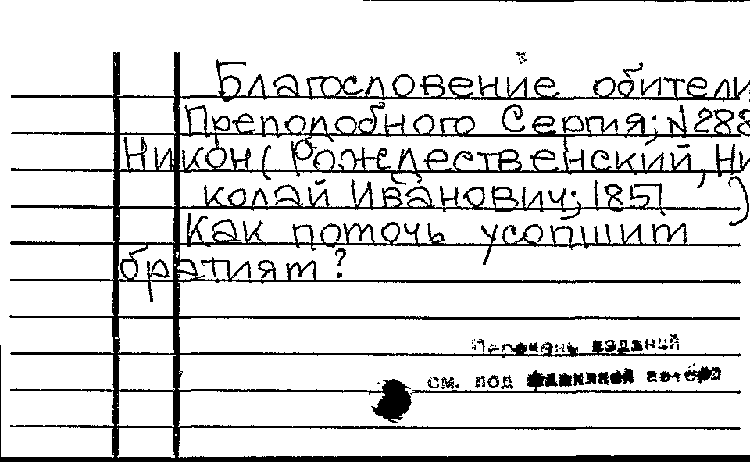 Благословение обители
Преподобного Сергия; N288
Никон (Рождественский, Ни
колай Иванович; 1851 )
Как помочь усопшим
братиям?
Перечень изданий
см. под фамилией автора